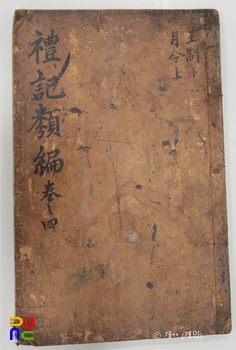 王制下
月令上
禮記類編 卷之四
© 개** (개인)